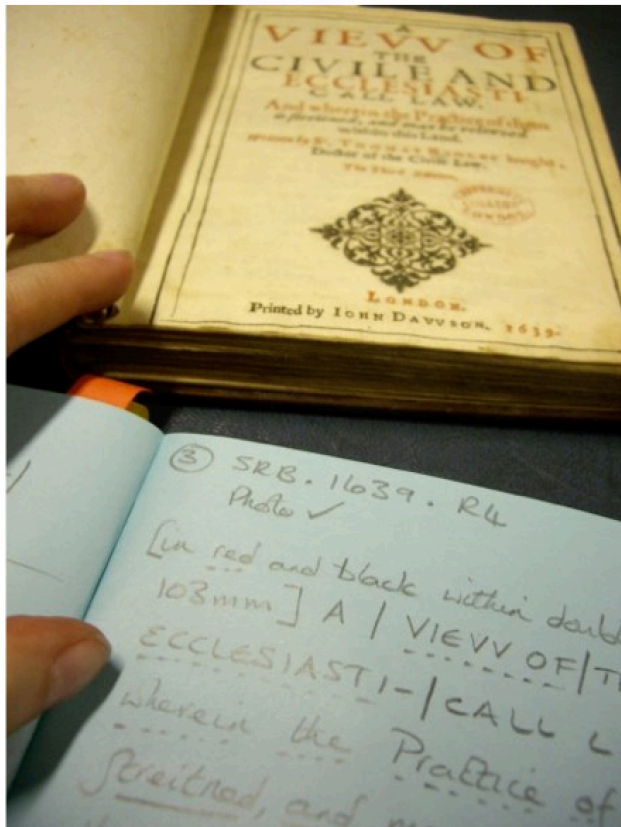 A
VIEVV OF
THE
CIVILE AND
ECCLESIASTI-
CALL LAW.
And wherein the Practice of them
is streitned, and may be releeved
within this Land.
Written by Sr. THOMAS RIDLEY Knight,
Doctor of the Civil Law.
LONDON
LONDON.
Printed by IOHN DAVVSON, 1639.
③ SRB.1639.R4
Photo ✓
[in red and black within doubl
103mm] A / VIEVV OF/T
ECCLESIASTI-/CALL L
wherein the Practice of
ſtreitned, and